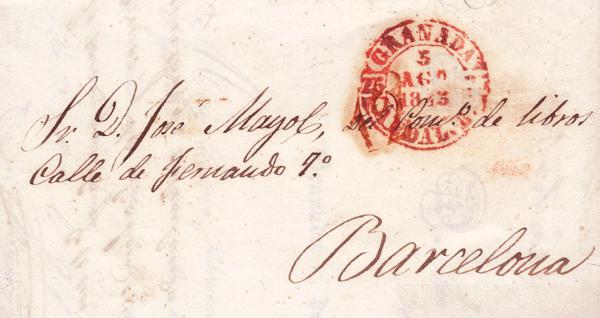 GRANADA
5
AGO
ANDAL. B.
Sr. D. José Mayol, del Com.º de libros
Calle de Fernando 7.º
Barcelona